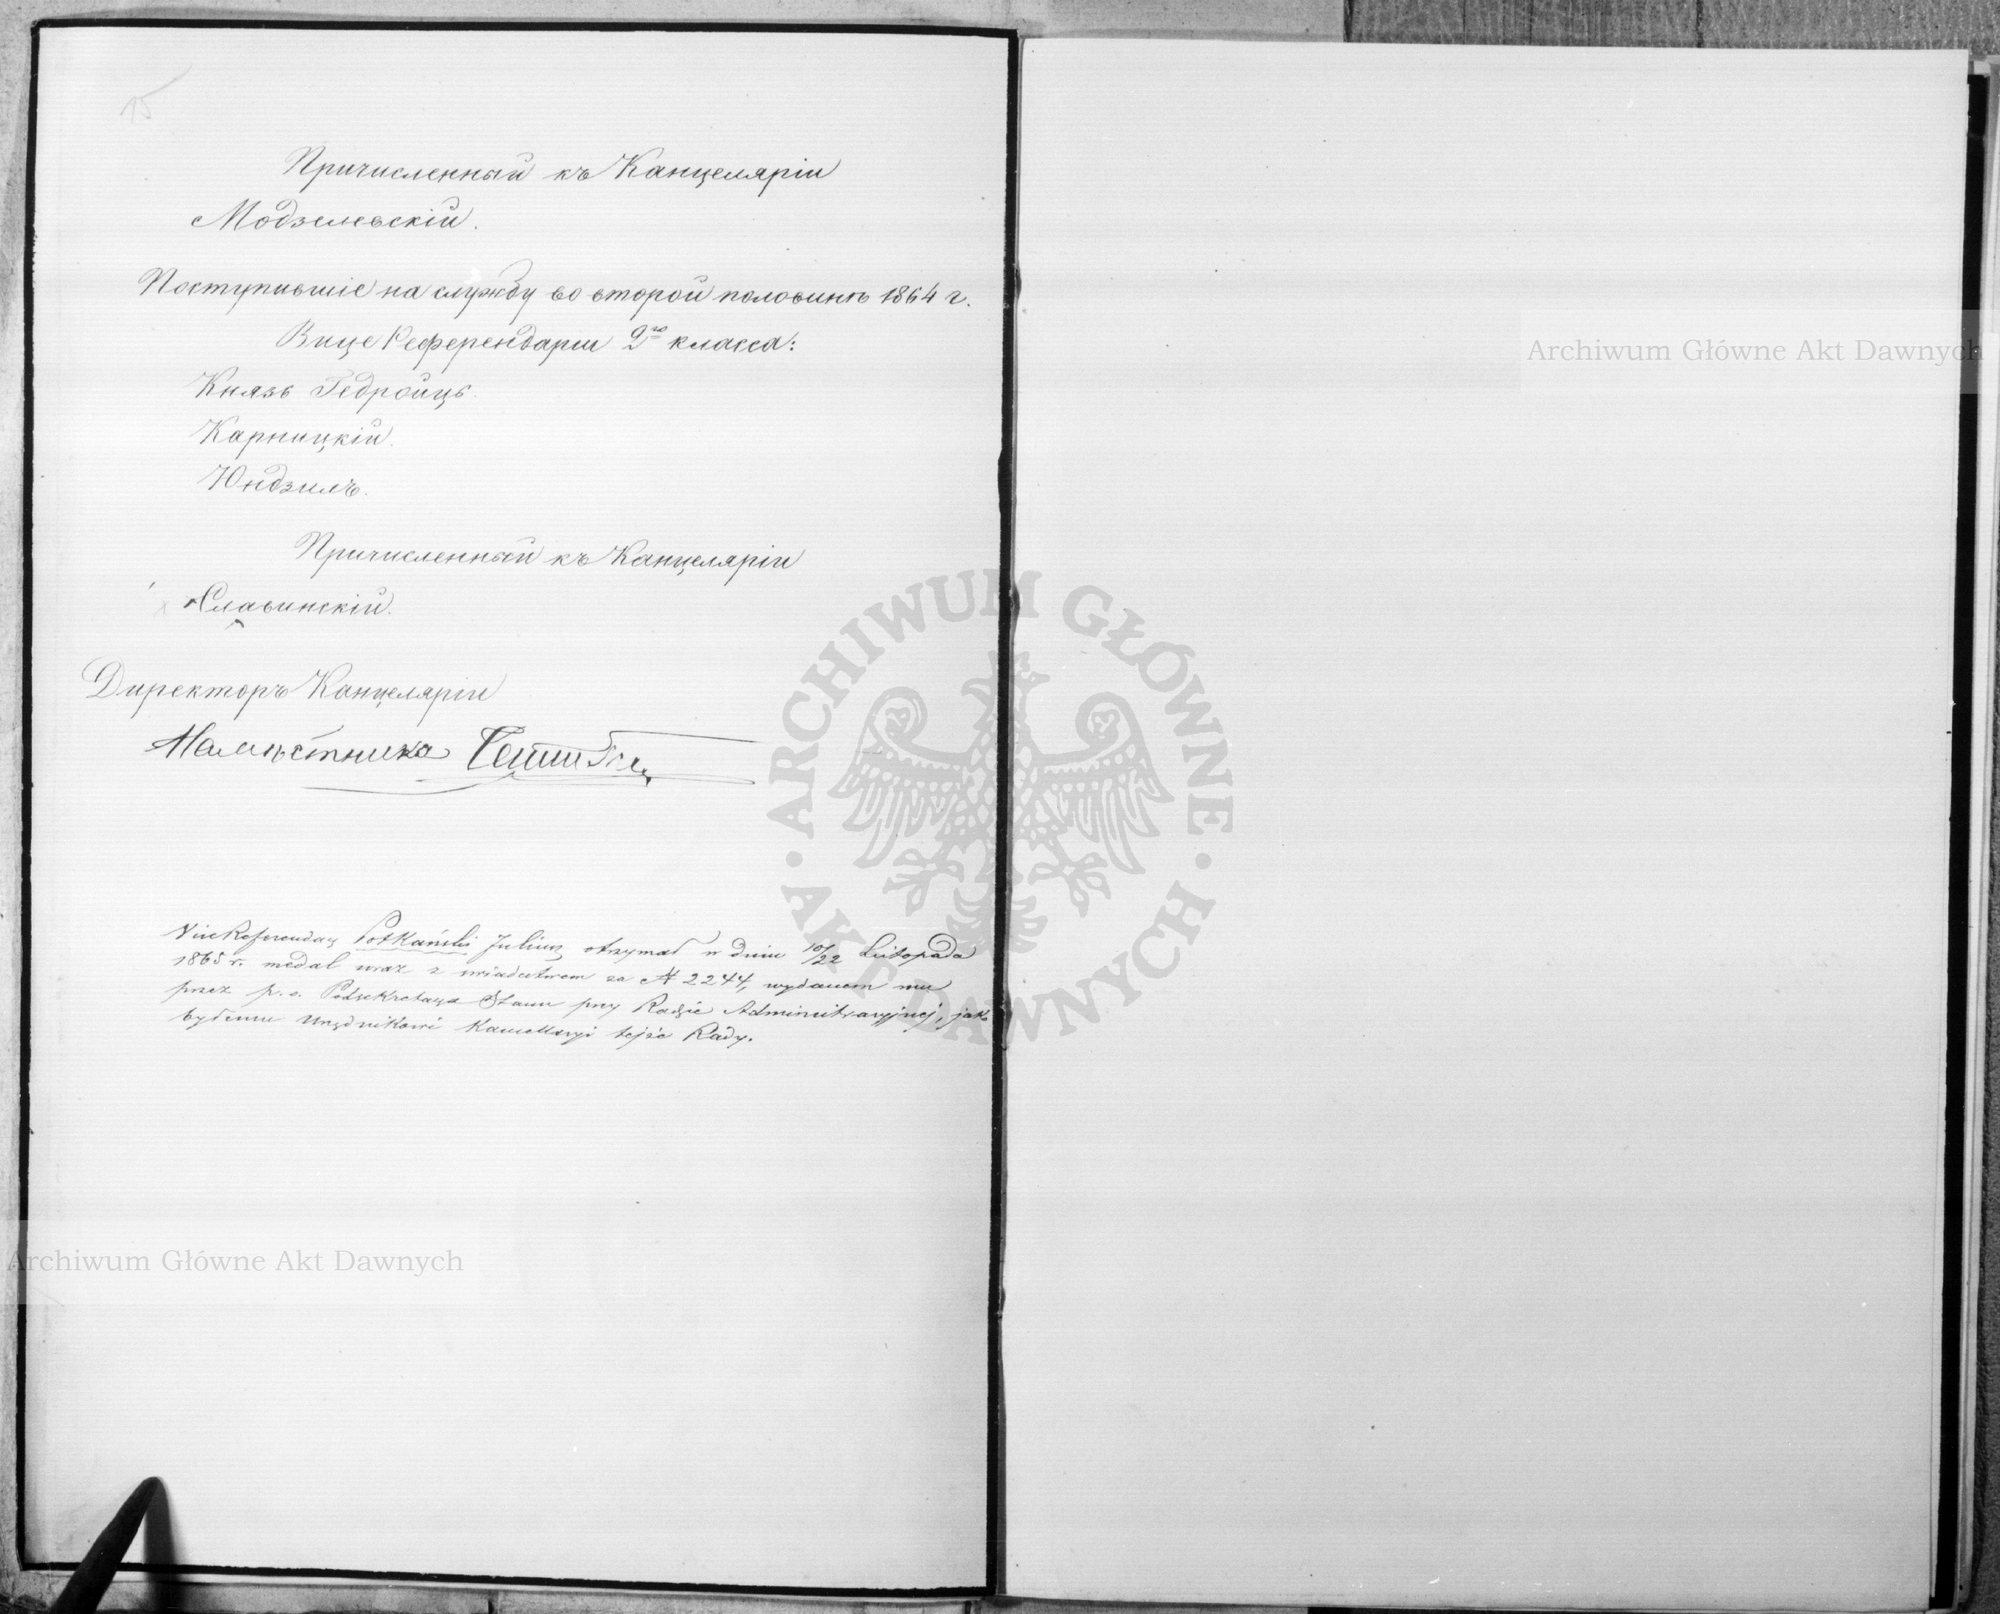 15
Причисленный къ Канцеляріи
Модзелевскій.
Поступившіе на службу во второй половинѣ 1864 г.
Вице Референдаріи 2го класса:
Князь Гедройцъ.
Карницкій.
Юндзилъ.
Причисленный къ Канцеляріи
Славинскій.
Директоръ Канцеляріи
Намѣстника
ViceReferendarz Potkański Juliusz otrzymał w dniu 10/22 Listopada
1865 r. medal wraz z świadectwem za N 2244, wydanem mu
przez p. o. Podsekretarza Stanu przy Radzie Administracyjnej, jako
byłemu Urzędnikowi Kancellaryi tejże Rady.
Archiwum Główne Akt Dawnych
ARCHIWUM GŁÓWNE AKT DAWNYCH
Archiwum Główne Akt Dawnych